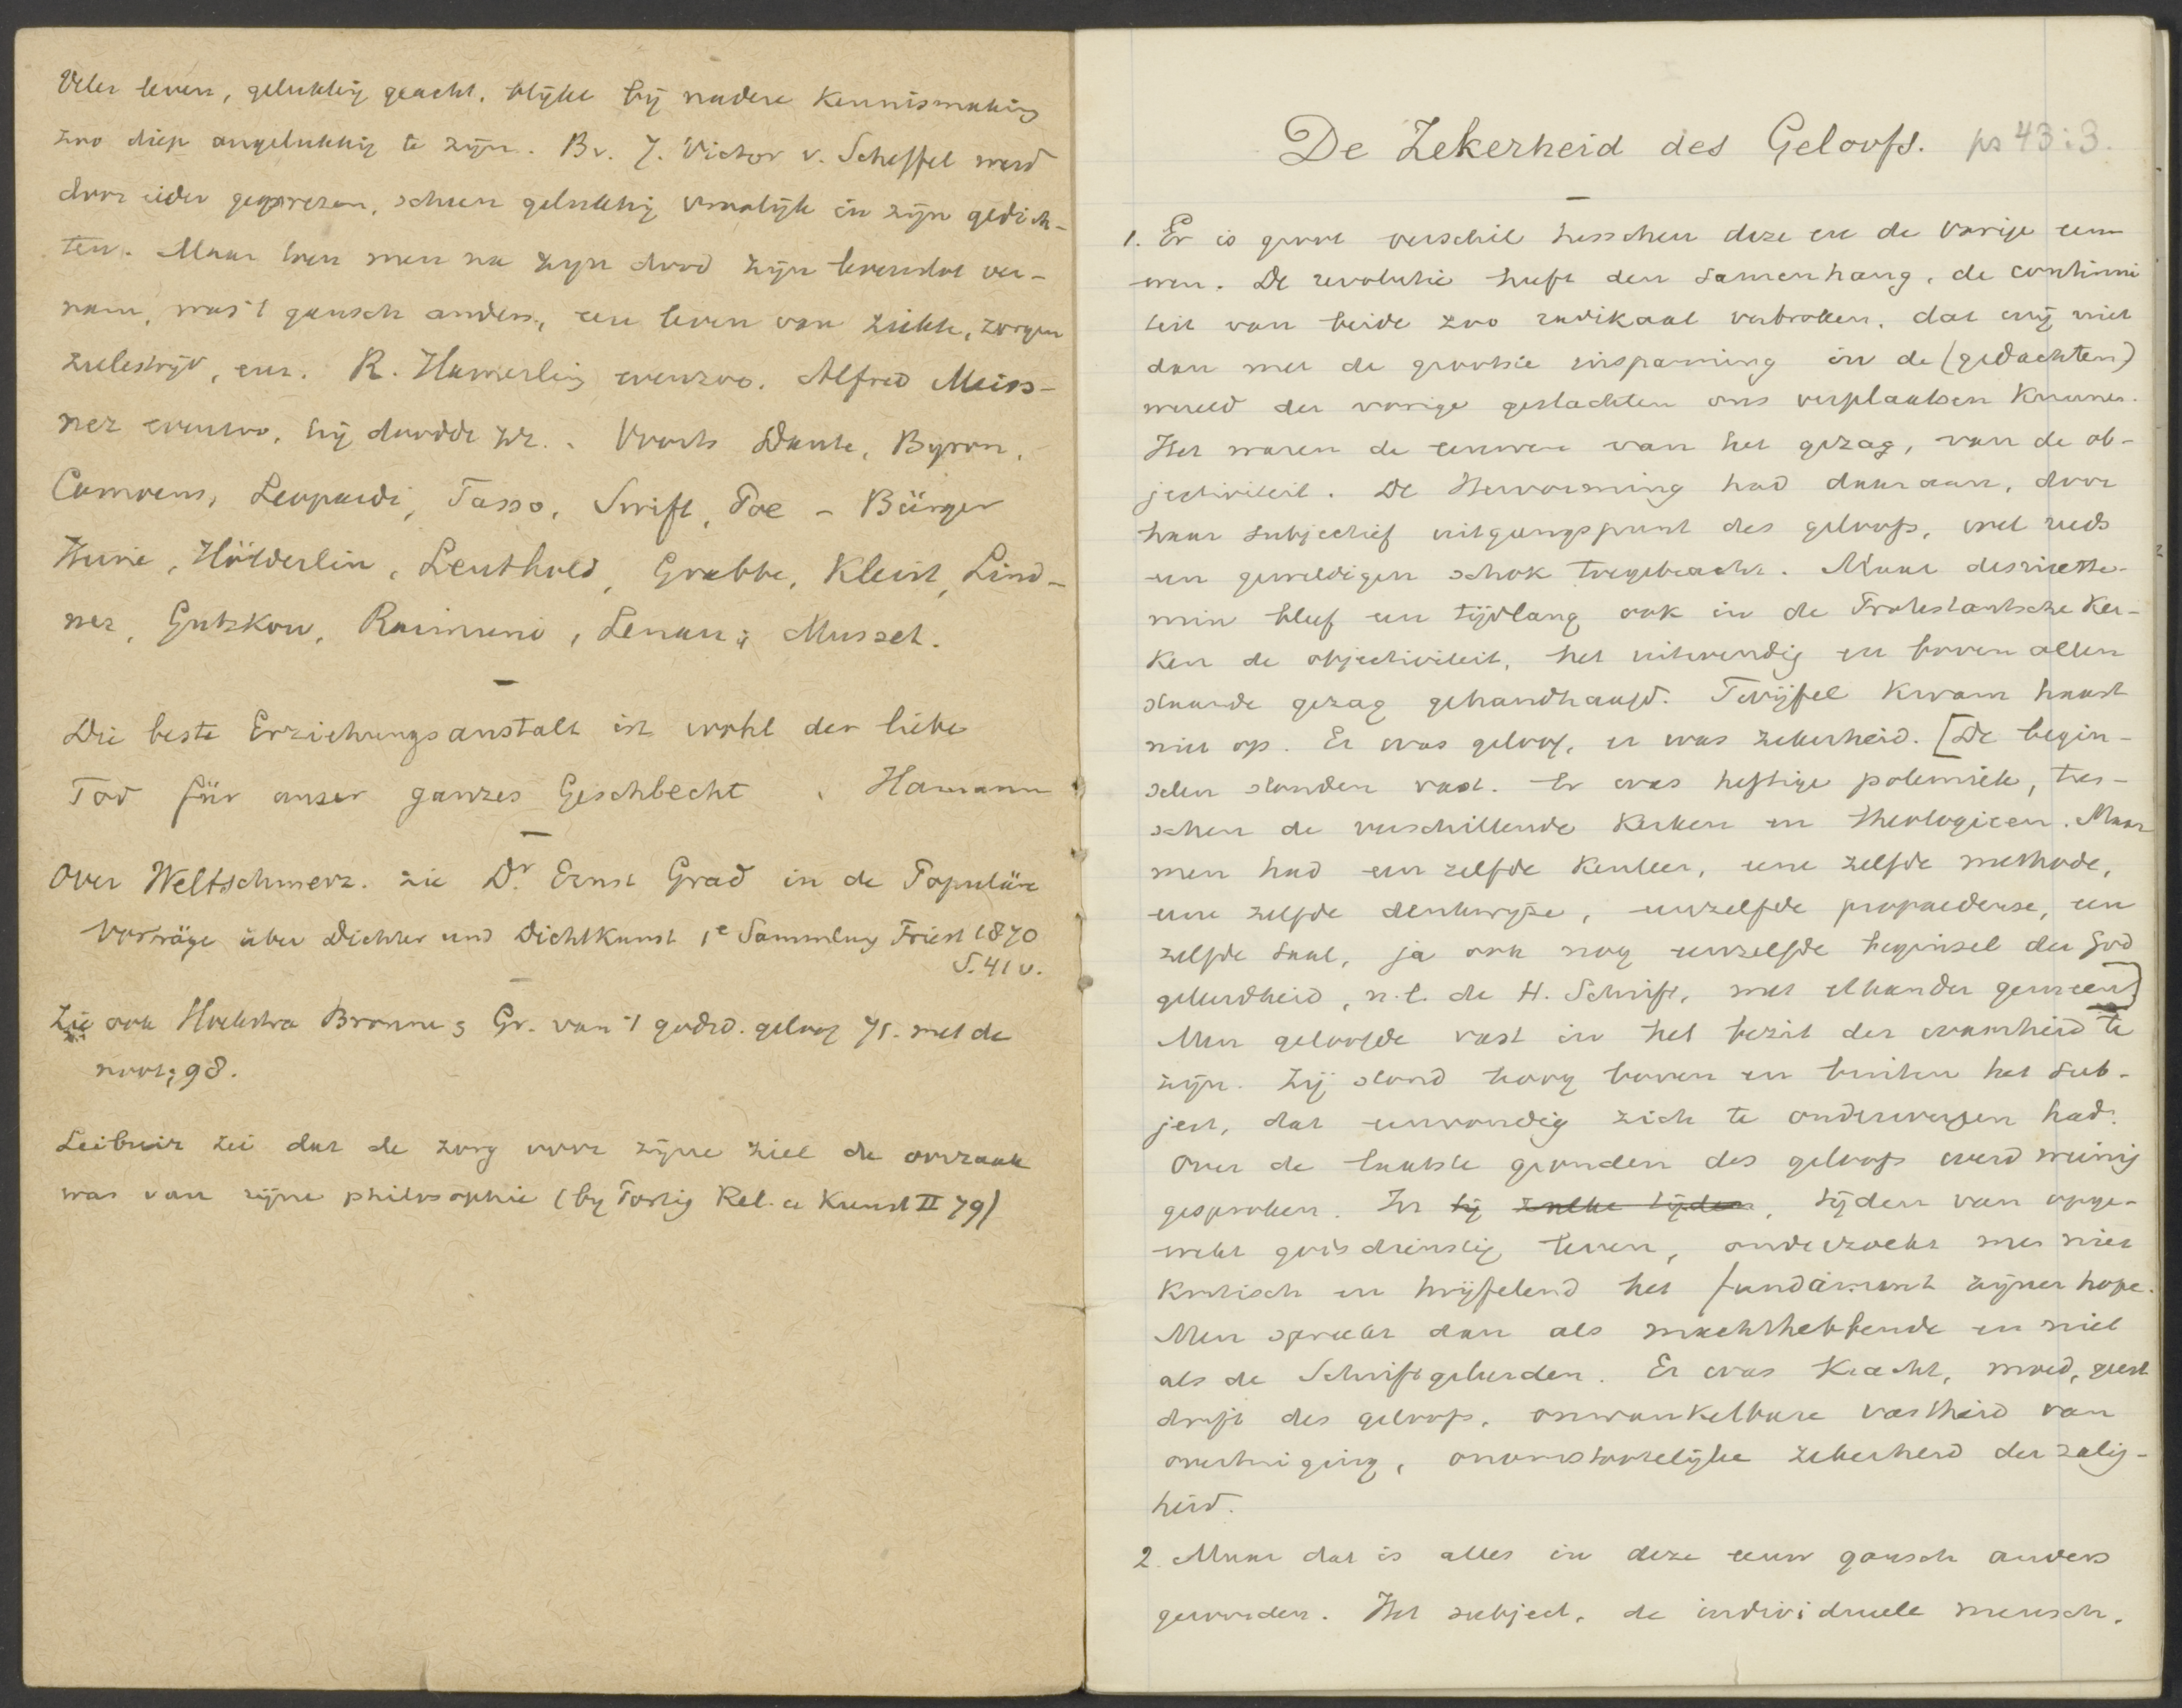 Veler leven, gelukkig geacht, blijkt bij nadere kennismaking
zoo diep ongelukkig te zijn. Bv. J. Victor v. Scheffel werd
door ieder geprezen, scheen gelukkig vroolijk in zijn gedich-
ten. Maar toen men na zijn dood zijn levenslot ver-
nam, was 't gansch anders, een leven van ziekte, zorgen
zielestrijd, enz. R. Hamerling evenzoo. Alfred Meiss-
ner evenzoo, hij doodde zr. Voorts Dante, Byron,
Camoens, Leopardi, Tasso, Swift, Poe - Bürger
Heine, Hölderlin, Leuthold, Grabbe, Kleist, Lind-
ner, Gutzkow, Raimund, Lenau, Musset.
Die beste Erziehungsanstalt ist wohl der liebe
Tod für unser ganzes Geschlecht. Hamann
Over Weltschmerz. zie Dr. Ernst Grad in de Populäre
Vorträge über Dichter und Dichtkunst 1e Sammlung Triest 1870
S. 41 v.
Zie ook Hoekstra Bronnen Gr. van 't godsd. geloof 71. met de
noot; 98.
Leibniz zei dat de zorg voor zijne ziel de oorzaak
was van zijne philosophie (by Portig Rel. u Kunst II 79)
De Zekerheid des Geloofs. ps 43:3.
1. Er is groot verschil tusschen deze en de vorige eeu-
wen. De revolutie heeft den samenhang, de continui
teit van beide zoo radikaal verbroken, dat wij niet
dan met de grootste inspanning in de (gedachten)
wereld der vorige geslachten ons verplaatsen kunnen.
Het waren de eeuwen van het gezag, van de ob-
jectiviteit. De Hervorming had daaraan, door
haar subjectief uitgangspunt des geloofs, wel reeds
een geweldigen schok toegebracht. Maar desniette-
min bleef een tijdlang ook in de Protestantsche Ker-
ken de objectiviteit, het uitwendig en boven allen
staande gezag gehandhaafd. Twijfel kwam haast
niet op. Er was geloof, er was zekerheid. [De begin-
selen stonden vast. Er was heftige polemiek, tus-
schen de verschillende Kerken en theologieen. Maar
men had een zelfde kenleer, eene zelfde methode,
eene zelfde denkwijze, eenzelfde propaedeuse, een
zelfde taal, ja ook nog eenzelfde beginsel der God
geleerdheid, n.l. de H. Schrift, met elkander gemeen]
Men geloofde vast in het bezit der waarheid te
zijn. Zij stond hoog boven en buiten het sub-
ject, dat eenvoudig zich te onderwerpen had.
Over de laatste gronden des geloofs werd weinig
gesproken. In tij zulke tijden, tijden van opge-
wekt godsdienstig leven, onderzoekt men niet
kritisch en twijfelend het fundament zijner hope.
Men spreekt dan als machthebbende en niet
als de Schriftgeleerden. Er was kracht, moed, geest
drift des geloofs, onwankelbare vastheid van
overtuiging, onomstootelijke zekerheid der zalig-
heid.
2. Maar dat is alles in deze eeuw gansch anders
geworden. Het subject, de individueele mensch,